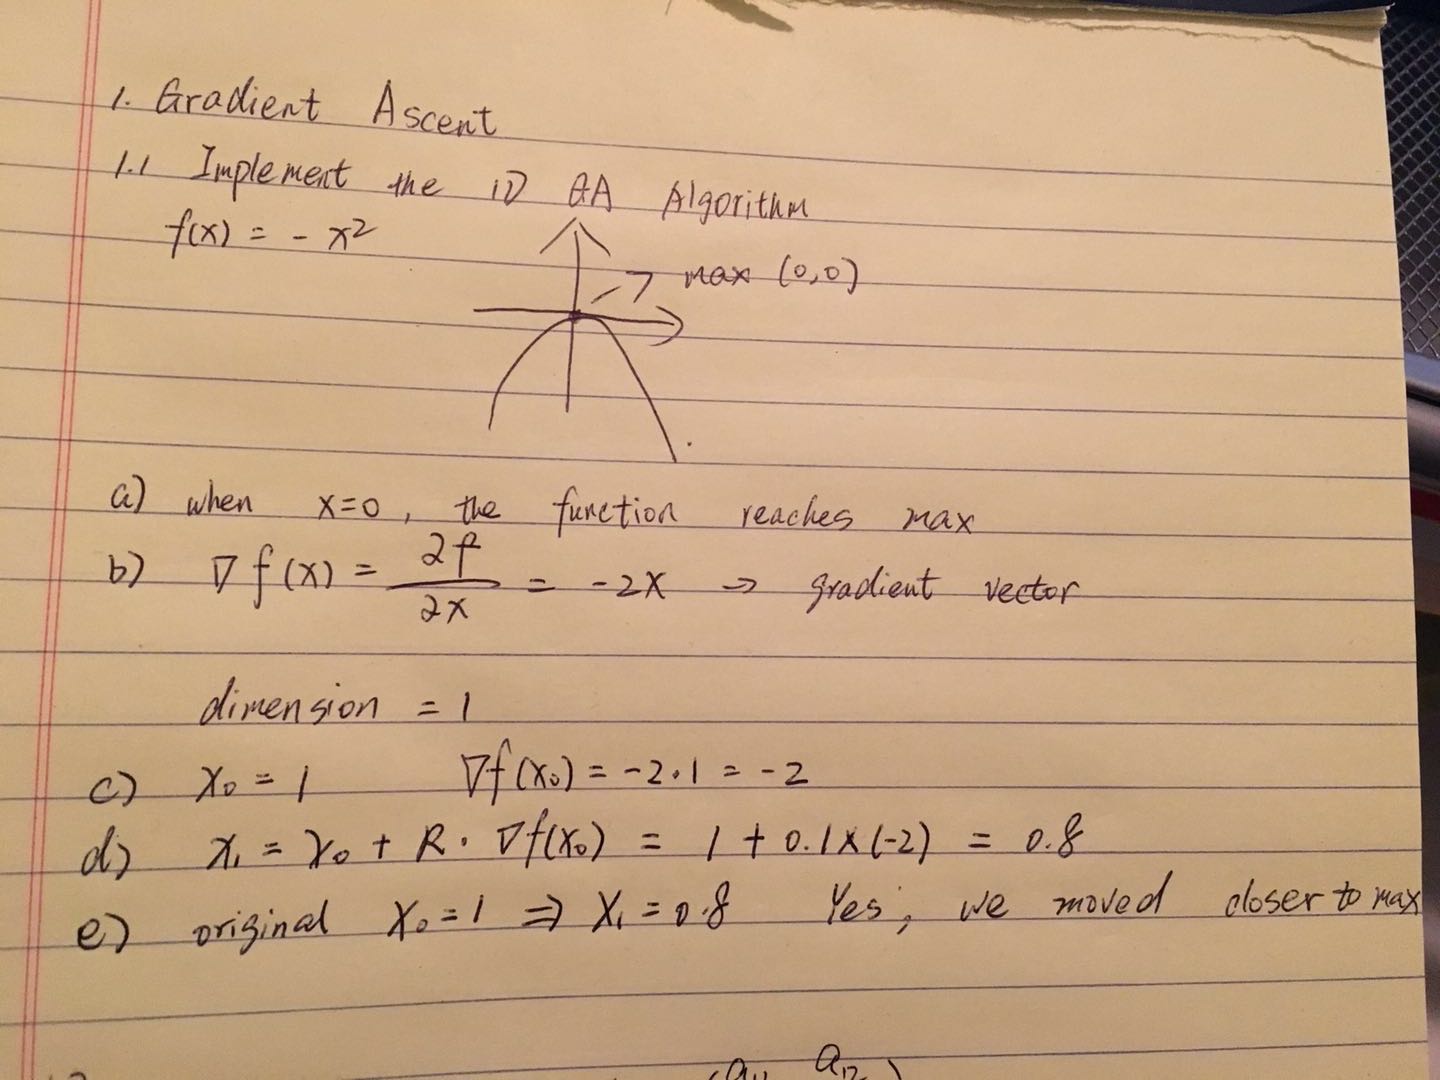 1. Gradient Ascent
1.1 Implement the 1D GA Algorithm
f(x) = - x²
max (0,0)
a) when x=0, the function reaches max
b) ∇f(x) = ∂f/∂x = -2x → gradient vector
dimension = 1
c) x₀ = 1 ∇f(x₀) = -2·1 = -2
d) x₁ = x₀ + R · ∇f(x₀) = 1 + 0.1×(-2) = 0.8
e) original x₀=1 ⇒ x₁=0.8 Yes, we moved closer to max
a₁₁ a₁₂